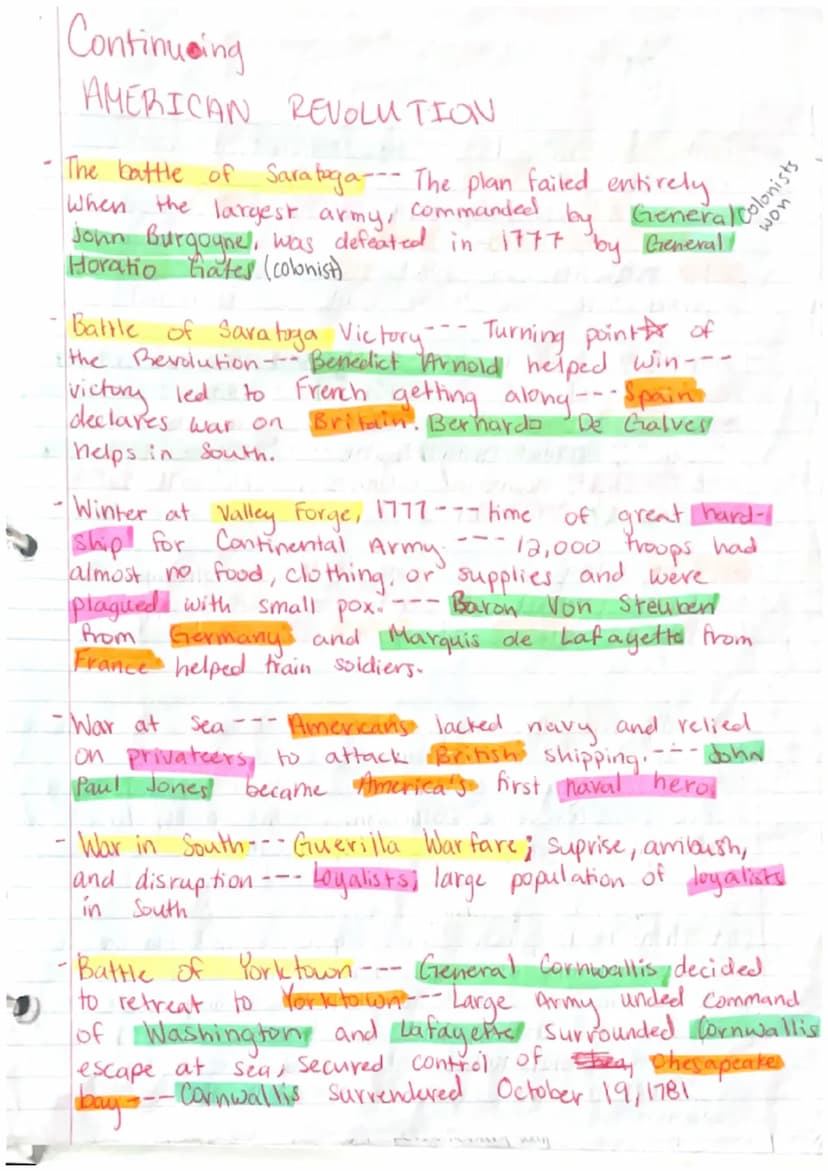 Continuing
AMERICAN REVOLUTION
- The battle of Saratoga--- The plan failed entirely
when the largest army, commanded by General
colonists won
John Burgoyne, was defeated in 1777 by General
Horatio Gates (colonist)
- Battle of Saratoga Victory--- Turning point☆ of
the Revolution--- Benedict Arnold helped win---
victory led to French getting along--- Spain
declares war on Britain. Bernardo De Galves
helps in South.
- Winter at Valley Forge, 1777---time of great hard-
ship for Continental Army.--- 12,000 troops had
almost no food, clothing, or supplies and were
plagued with small pox.--- Baron Von Steuben
from Germany and Marquis de Lafayette from
France helped train soldiers.
- War at Sea--- Americans lacked navy and relied
on privateers, to attack British shipping.--- John
Paul Jones became America's first naval hero
- War in South--- Guerilla Warfare; Suprise, ambush,
and disruption --- Loyalists; large population of loyalists
in South
- Battle of Yorktown--- General Cornwallis, decided
to retreat to Yorktown--- Large Army unded command
of Washington and Lafayette surrounded Cornwallis
escape at sea, secured control of Chesapeake
bay--- Cornwallis surrendered October 19, 1781